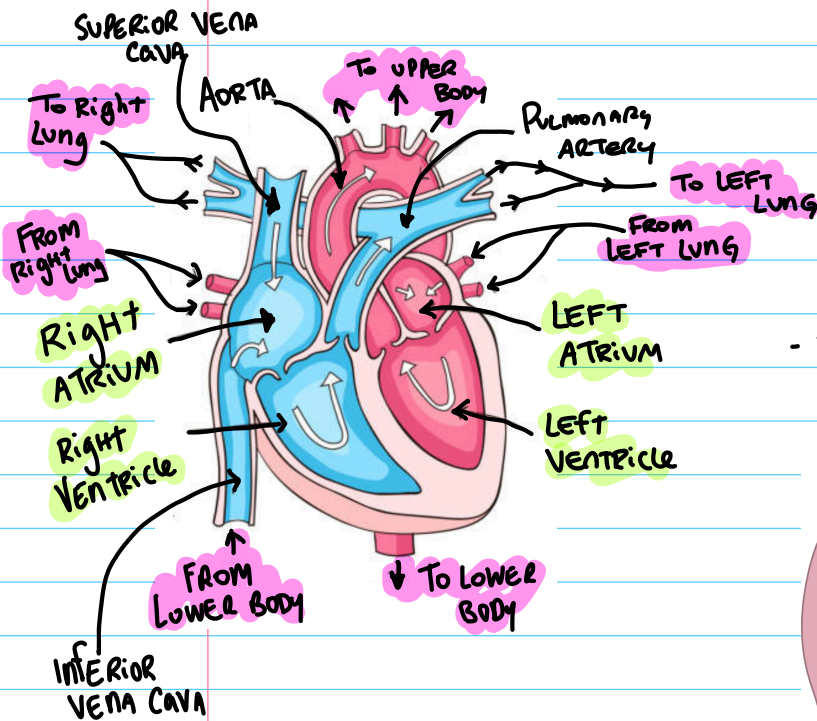 SUPERIOR VENA
CAVA
AORTA
To UPPER
BODY
To Right
Lung
PULMONARY
ARTERY
To LEFT
LUNG
FROM
Right Lung
FROM
LEFT LUNG
Right
ATRIUM
LEFT
ATRIUM
Right
VENTRICLE
LEFT
VENTRICLE
FROM
LOWER BODY
To LOWER
BODY
INFERIOR
VENA CAVA